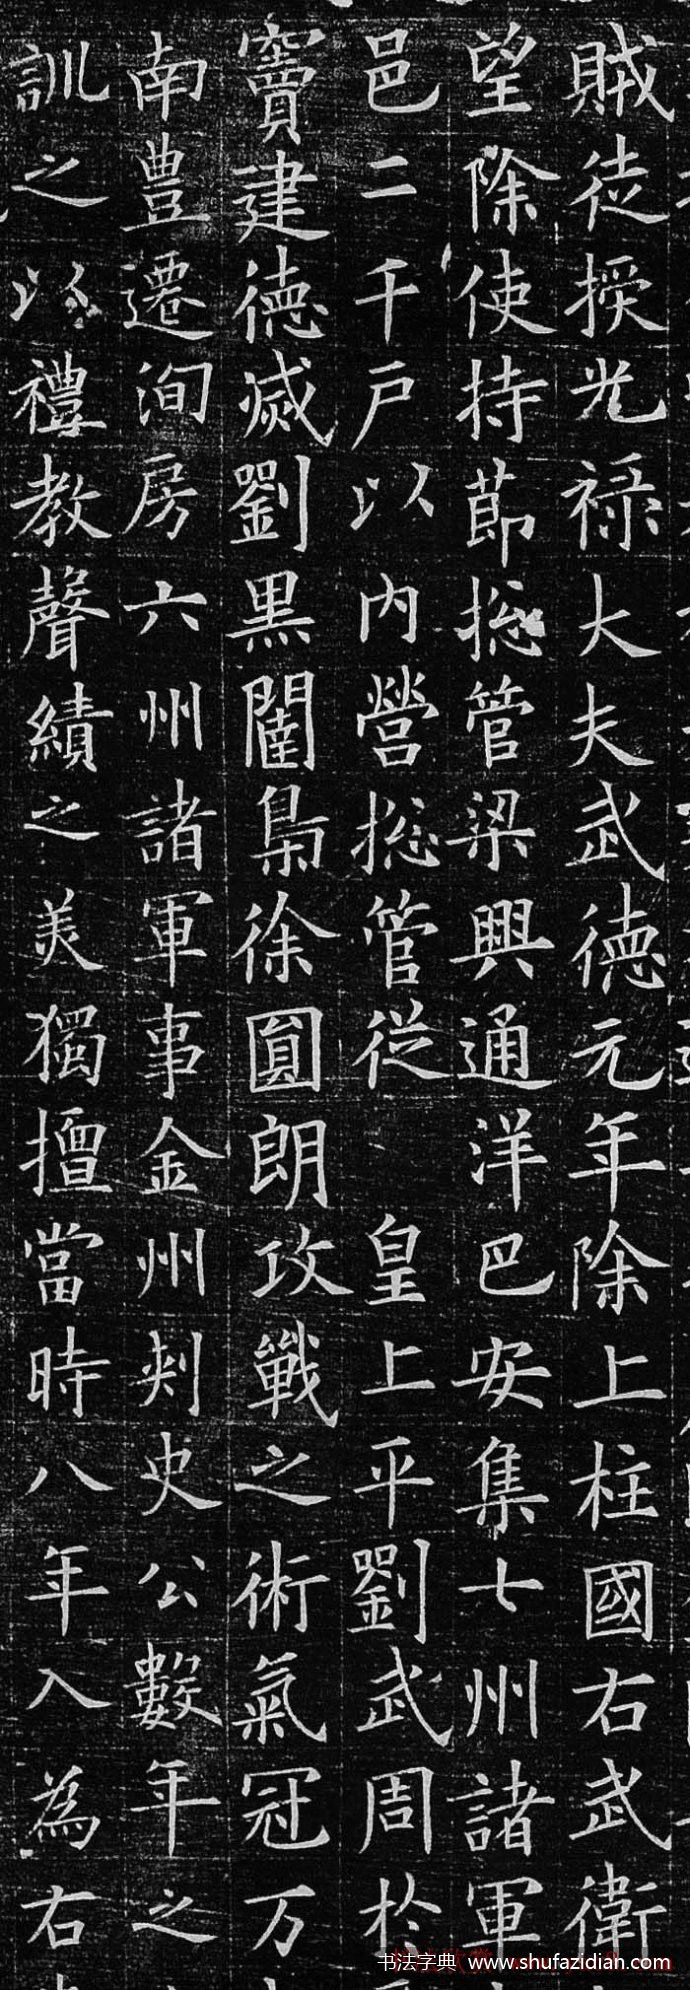 賊徒授光祿大夫武德元年除上柱國右武衛
望除使持節揔管梁興通洋巴安集七州諸軍
邑二千戶以內營揔管從皇上平劉武周於
竇建德滅劉黑闥梟徐圎朗攻戰之術氣冠万
南豊遷洵房六州諸軍事金州刾史公數年之
訓之以禮教聲績之美獨擅當時八年入為右
书法字典 www.shufazidian.com